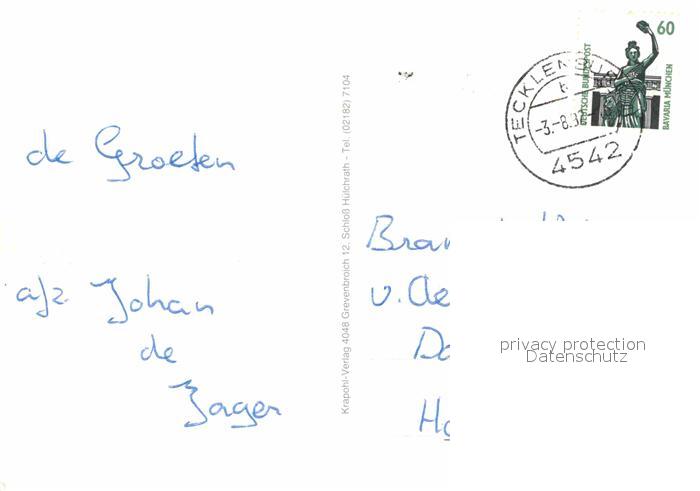 de Groeten
afz. Johan
de
Jager
Krapohl-Verlag 4048 Grevenbroich 12, Schloß Hülchrath - Tel. (02182) 7104
60
DEUTSCHE BUNDESPOST
BAVARIA MÜNCHEN
4542
v.
privacy protection
Datenschutz